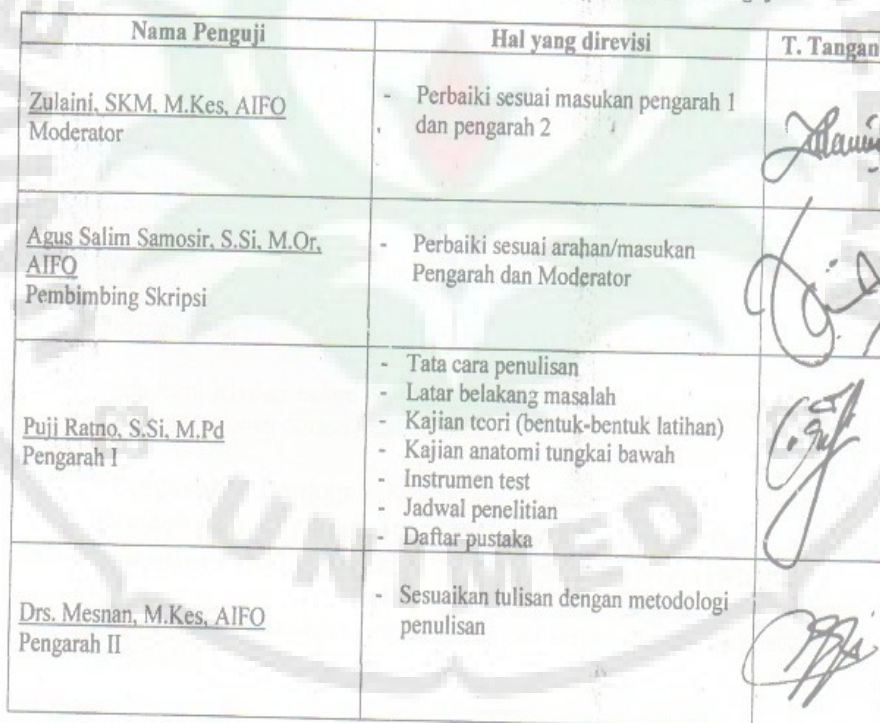 Nama Penguji
Hal yang direvisi
T. Tangan
Zulaini, SKM, M.Kes, AIFO
Moderator
- Perbaiki sesuai masukan pengarah 1
dan pengarah 2
Agus Salim Samosir, S.Si, M.Or,
AIFO
Pembimbing Skripsi
- Perbaiki sesuai arahan/masukan
Pengarah dan Moderator
Puji Ratno, S.Si, M.Pd
Pengarah I
- Tata cara penulisan
- Latar belakang masalah
- Kajian teori (bentuk-bentuk latihan)
- Kajian anatomi tungkai bawah
- Instrumen test
- Jadwal penelitian
- Daftar pustaka
Drs. Mesnan, M.Kes, AIFO
Pengarah II
- Sesuaikan tulisan dengan metodologi
penulisan
UNIMED